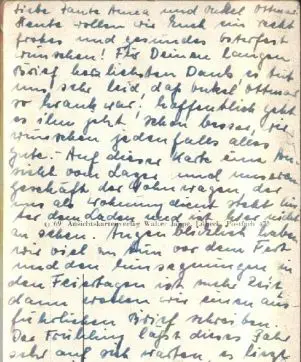 Liebe Tante Anna und Onkel Ottmar
Heute wollen wir Euch ein recht
frohes und gesundes Osterfest
wünschen! Für Deinen langen
Brief herzlichsten Dank. Es tut
uns sehr leid, daß Onkel Ottmar
so krank war! Hoffentlich geht
es ihm jetzt schon besser, wir
wünschen jedenfalls alles
gute. Auf dieser Karte eine An-
sicht vom Lager und unserem
Geschäft der Wohnwagen, der
uns als Wohnung dient steht hin-
ter dem Laden und ist hier nicht
zu sehen. Augenblicklich haben
wir viel zu tun vor dem Fest
und den Einsegnungen in
den Feiertagen ist mehr Zeit
dann wollen wir einen aus-
führlichen Brief schreiben.
Der Frühling läßt dieses Jahr
sehr auf sich warten, es liegt
69 Ansichtskartenverlag Walter